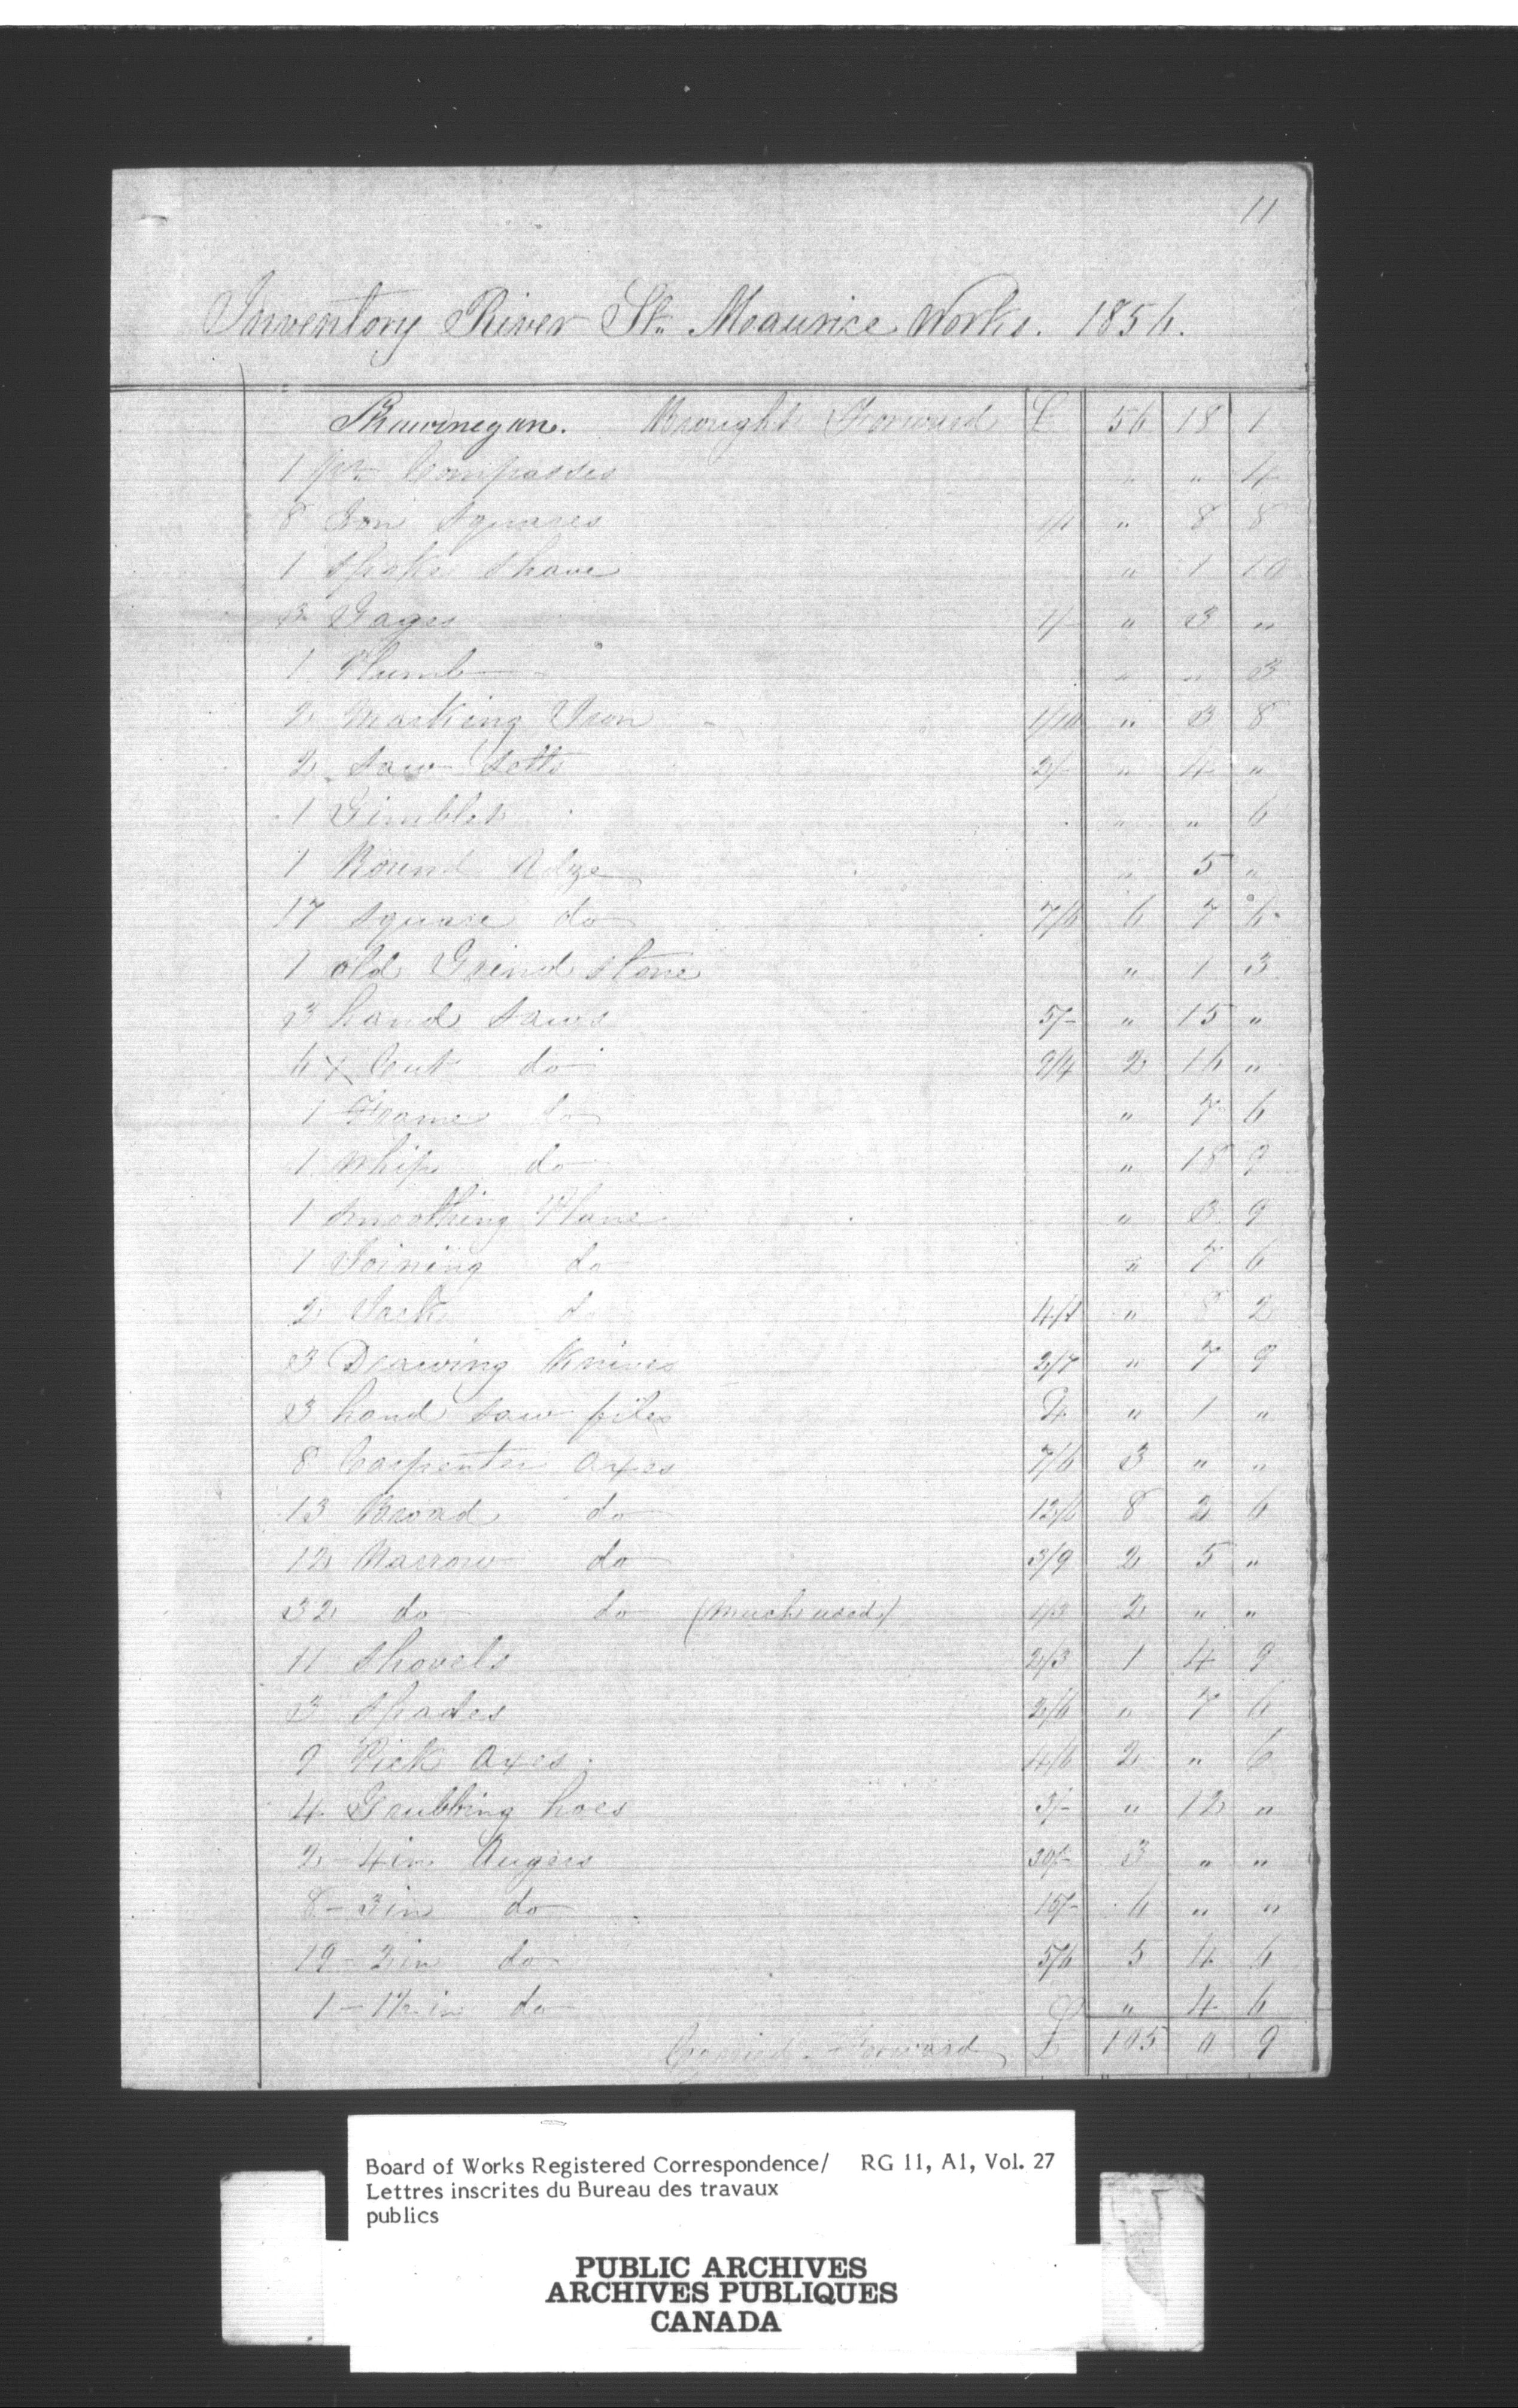 11
Inventory River St. Maurice Works. 1856.
Shawinegan. Brought Forward £ 56 18 1
1 pr Compasses " " 4
8 Iron Squares 1/1 " 8 8
1 Spoke Shave " 1 10
3 Gages 1/- " 3 "
1 Plumb " " 3
2 Marking Iron 1/10 " 3 8
2 Saw Setts 2/- " 4 "
1 Gimblet " " 6
1 Round Adze " 5 "
17 Square do 7/6 6 7 6
1 old Grind Stone " 1 3
3 hand Saws 5/- " 15 "
6 X Cut do 9/4 2 16 "
1 Frame do " 7 6
1 Whip do " 18 9
1 Smoothing Plane " 3 9
1 Joining do " 7 6
2 Jack do 4/1 " 8 2
3 Drawing Knives 2/7 " 7 9
3 hand saw files 4 " 1 "
8 Carpenter Axes 7/6 3 " "
13 Broad do 12/6 8 2 6
12 Narrow do 3/9 2 5 "
32 do do (Much used) 1/3 2 " "
11 Shovels 2/3 1 4 9
3 Spades 2/6 " 7 6
9 Pick Axes 4/6 2 " 6
4 Grubbing hoes 3/- " 12 "
2 - 4 in Augers 30/- 3 " "
8 - 3 in do 15/- 6 " "
19 - 2 in do 5/6 5 4 6
1 - 1½ in do " 4 6
Carried Forward £ 105 0 9
Board of Works Registered Correspondence/ RG 11, A1, Vol. 27
Lettres inscrites du Bureau des travaux
publics
PUBLIC ARCHIVES
ARCHIVES PUBLIQUES
CANADA